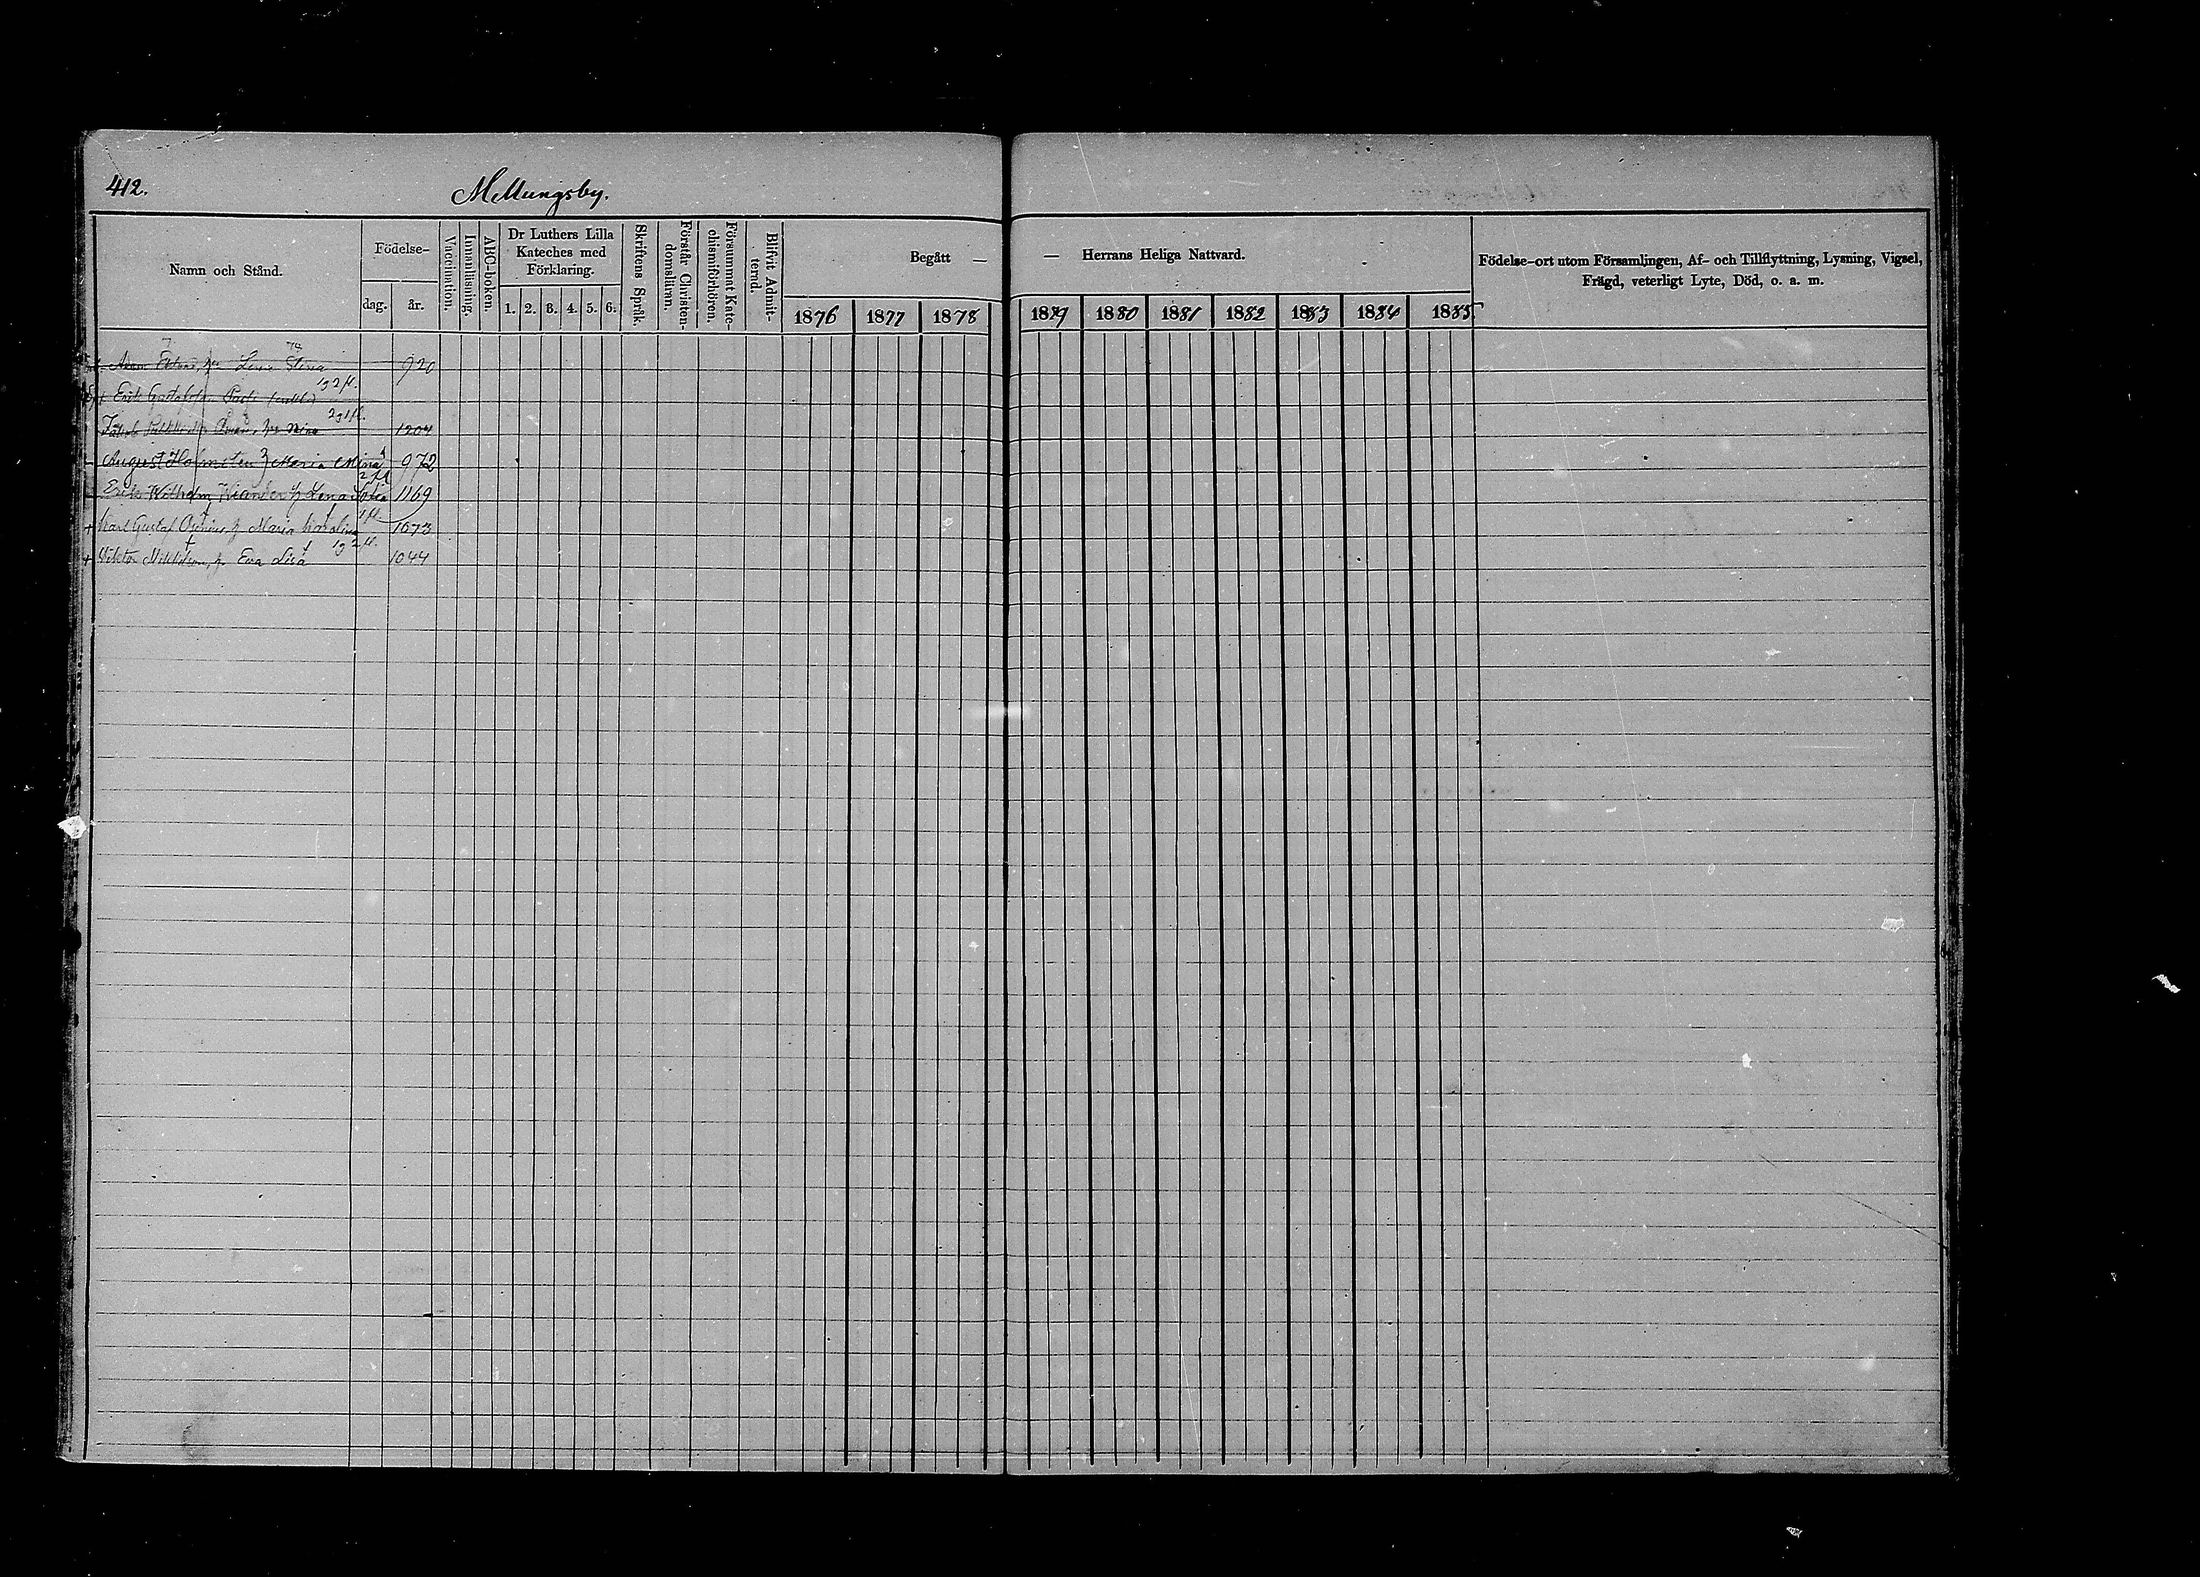 412.
Mellungsby.
Namn och Stånd.
Födelse-
dag.
år.
Vaccination.
Innanläsning.
ABC-boken.
Dr Luthers Lilla
Kateches med
Förklaring.
1. 2. 3. 4. 5. 6.
Skriftens Språk.
Förstår Christen-
domsläran.
Försummat Kate-
chismiförhören.
Blifvit Admit-
terad.
Begått —
1876 1877 1878
— Herrans Heliga Nattvard.
1879 1880 1881 1882 1883 1884 1885
Födelse-ort utom Församlingen, Af- och Tillflyttning, Lysning, Vigsel,
Frägd, veterligt Lyte, Död, o. a. m.
Lena Stina 920
Erik Gustafsson
Jakob 1204
August Holmsten Maria Mina 972
Erik Wilhelm Wiander Lena 1169
Karl Gustaf Maria Karolina 1073
Viktor Eva Lisa 1044